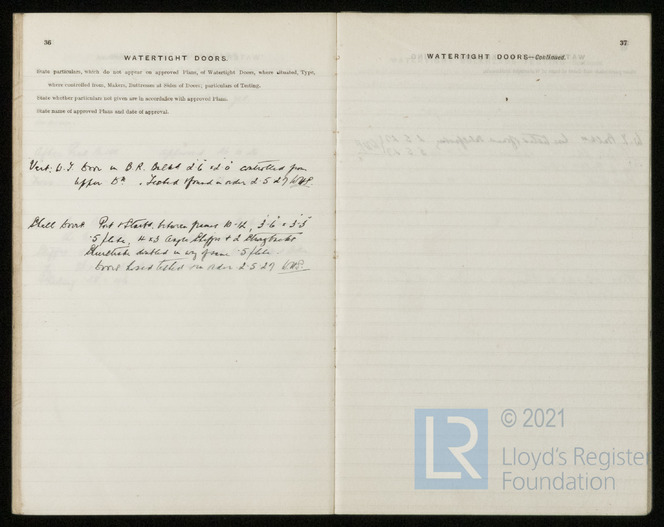 36
WATERTIGHT DOORS.
State particulars, which do not appear on approved Plans, of Watertight Doors, where situated, Type,
where controlled from, Makers, Buttresses at Sides of Doors; particulars of Testing.
State whether particulars not given are in accordance with approved Plans.
State name of approved Plans and date of approval.
Vert. W.T. door in B.R. Bulkd 2'6" x 2'0" controlled from
Upper Dk. Tested & found in order 2.5.27
Shell doors Port & Starbd. between frames 10-12, 3'6" x 3'3"
.5 plate, 4 x 3 angle
.5 plate
doors hose tested in order 2.5.27
37
WATERTIGHT DOORS—Continued.
LR
© 2021
Lloyd's Register
Foundation